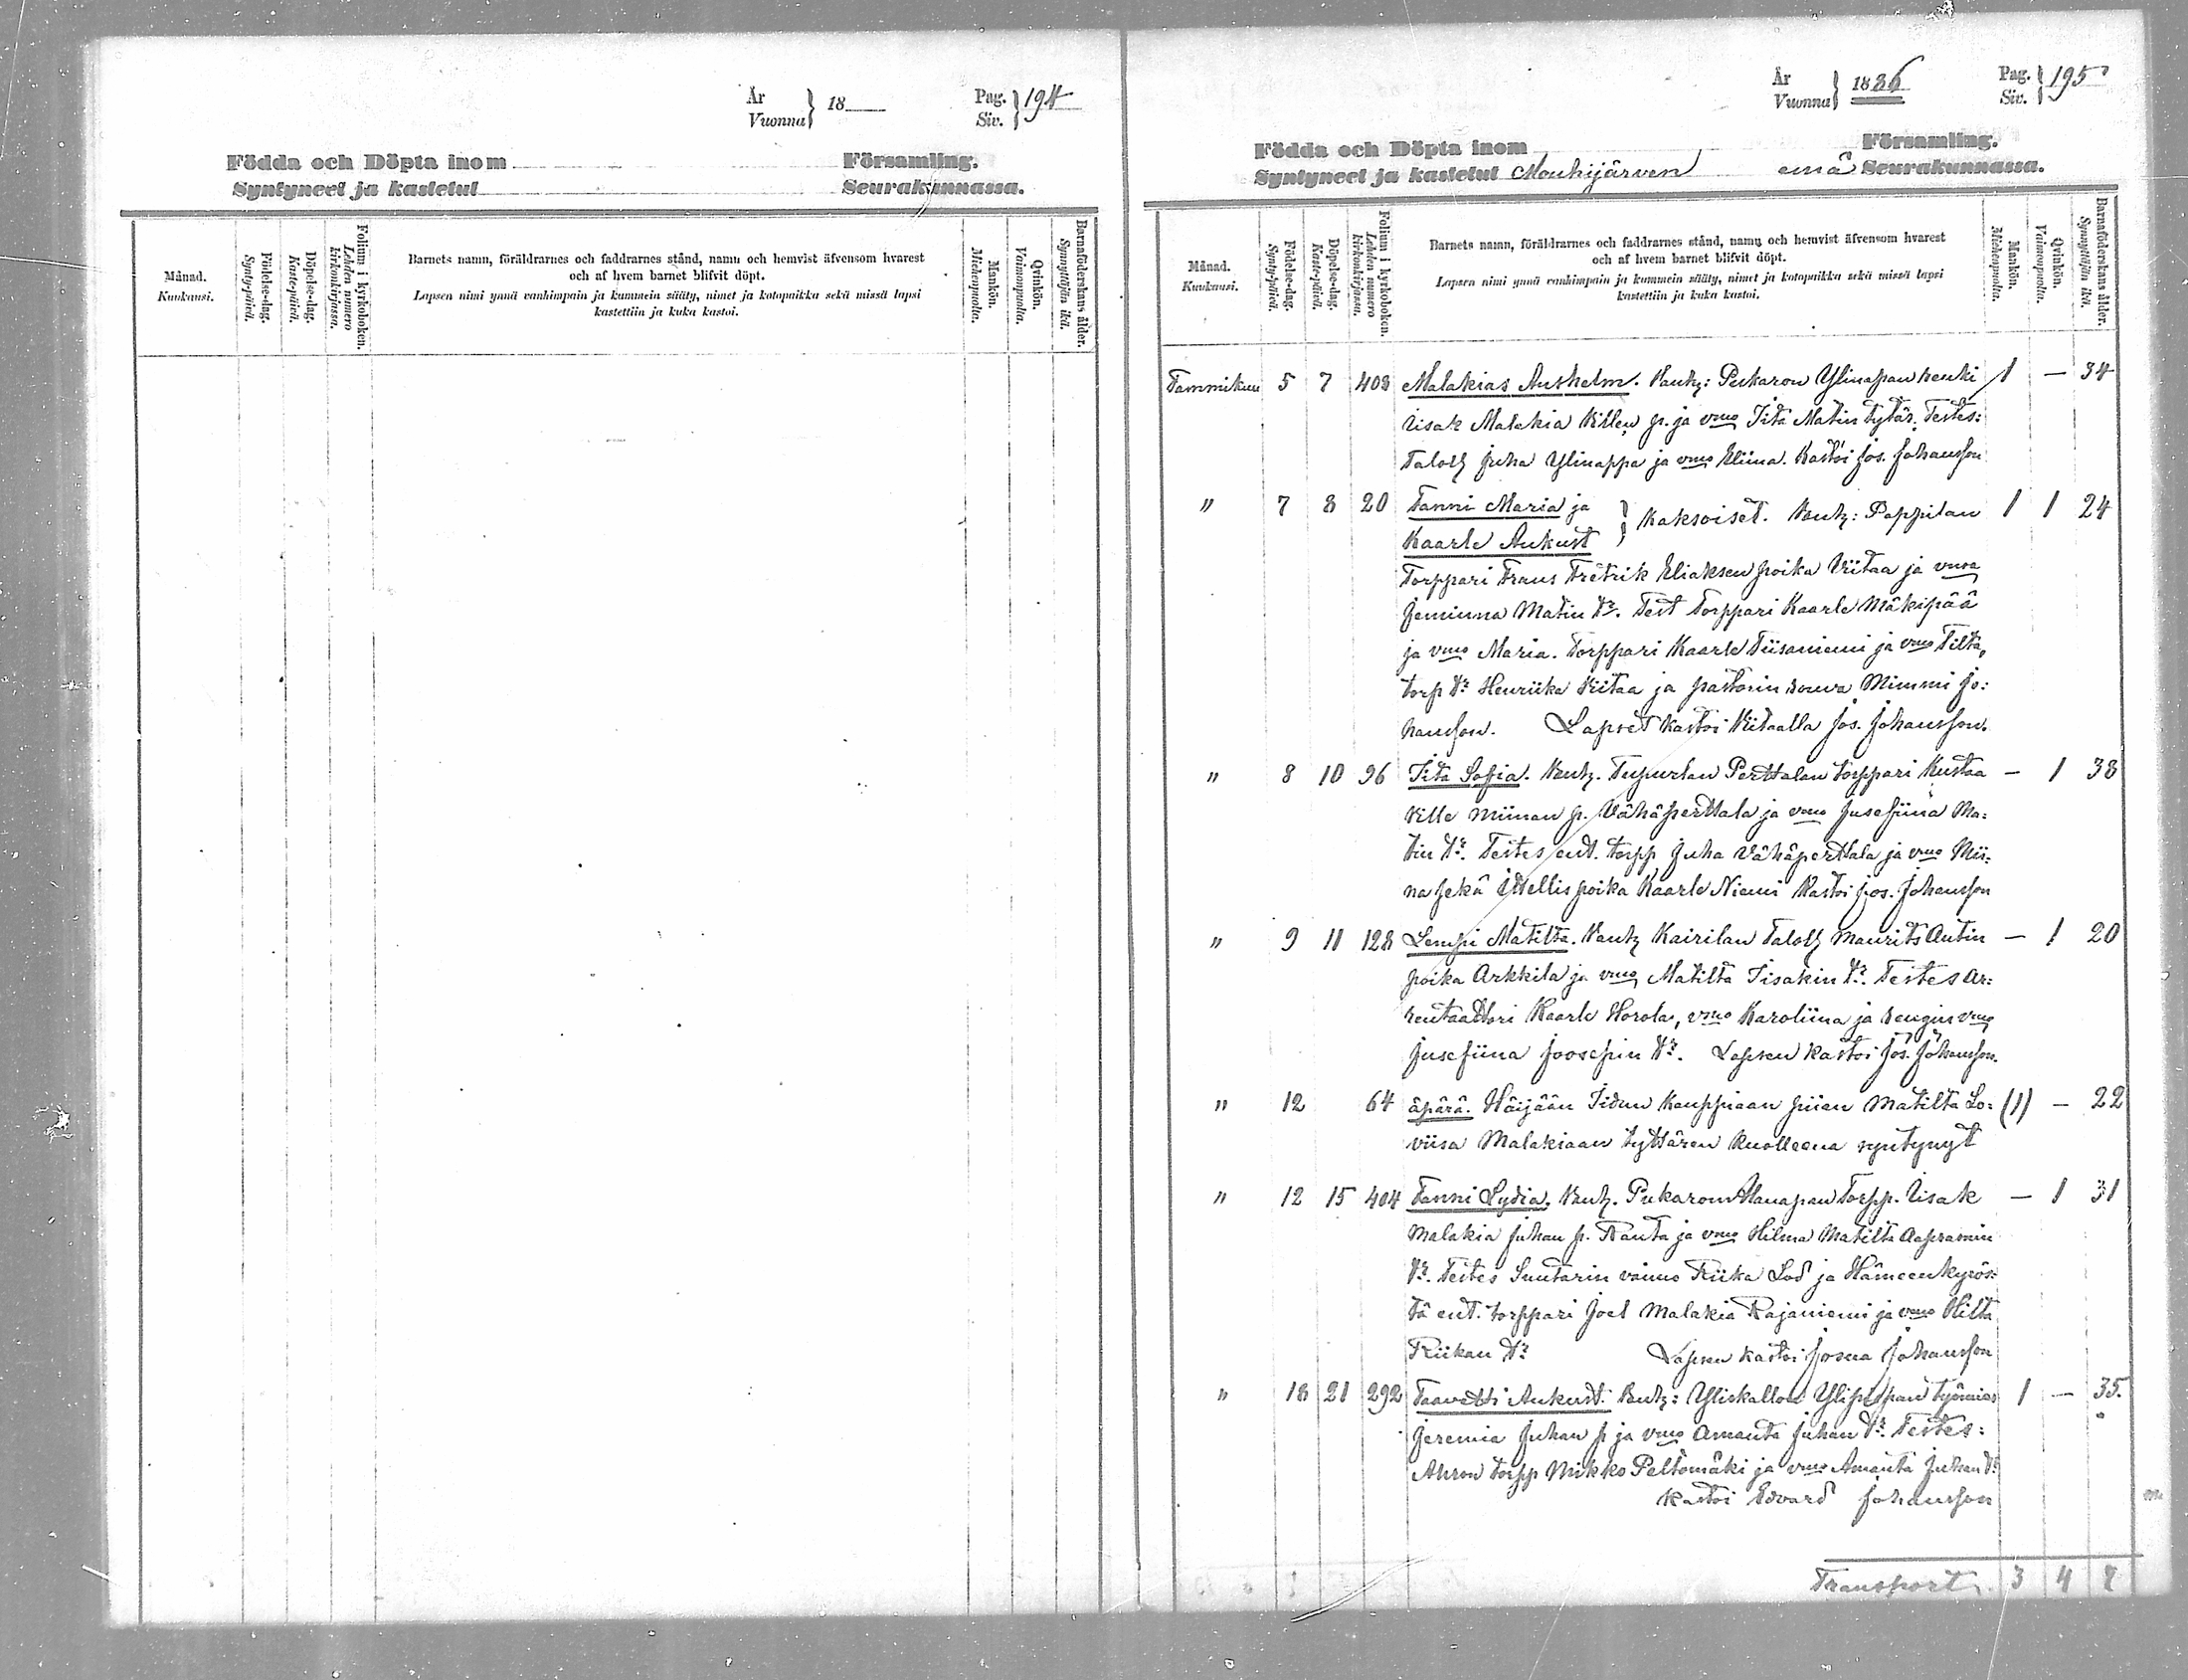 År
Vuonna } 18
Pag.
Siv. } 194
Födda och Döpta inom Församling.
Syntyneet ja kastetut Seurakunnassa.
Månad.
Kuukausi.
Födelse-dag.
Synty-päivä.
Döpelse-dag.
Kaste-päivä.
Folium i kyrkoboken.
Lehden numero
kirkonkirjassa.
Barnets namn, föräldrarnes och faddrarnes stånd, namn och hemvist äfvensom hvarest
och af hvem barnet blifvit döpt.
Lapsen nimi ynnä vanhimpain ja kummein sääty, nimet ja kotopaikka sekä missä lapsi
kastettiin ja kuka kastoi.
Mankön.
Miehenpuolta.
Qvinkön.
Vaimonpuolta.
Barnaföderskans ålder.
Synnyttäjän ikä.
År
Vuonna } 1886
Pag.
Siv. } 195
Födda och Döpta inom Församling.
Syntyneet ja kastetut Mouhijärven emä Seurakunnassa.
Månad.
Kuukausi.
Födelse-dag.
Synty-päivä.
Döpelse-dag.
Kaste-päivä.
Folium i kyrkoboken.
Lehden numero
kirkonkirjassa.
Barnets namn, föräldrarnes och faddrarnes stånd, namn och hemvist äfvensom hvarest
och af hvem barnet blifvit döpt.
Lapsen nimi ynnä vanhimpain ja kummein sääty, nimet ja kotopaikka sekä missä lapsi
kastettiin ja kuka kastoi.
Mankön.
Miehenpuolta.
Qvinkön.
Vaimonpuolta.
Barnaföderskans ålder.
Synnyttäjän ikä.
Tammikuu 5 7 403 Malakias Anshelm. Vanh: Pukaron Ylinapan renki 1 — 34
Iisak Malakia Villen p. ja vmo Iita Matin tytär. Testes:
Taloll Juha Ylinappa ja vmo Eliina. Kastoi Jos. Johansson
" 7 8 20 Fanni Maria ja } Kaksoiset. Vanh: Pappilan 1 1 24
Kaarle Aukust
Torppari Frans Fretrik Eliaksen poika Viitaa ja vmsa
Jemiina Matin tr. Test Torppari Kaarle Mäkipää
ja vmo Maria. Torppari Kaarle Tiisaniemi ja vmo Tilta,
torp tr Henriika Viitaa ja pastorin rouva Mimmi Jo:
hansson. Lapset kastoi Viitaalla Jos. Johansson.
" 8 10 96 Iita Sofia. Vanh. Tupurlan Perttalan torppari Kustaa — 1 38
Ville Miinan p. Vähäperttala ja vmo Jusefiina Ma:
tin tr. Testes ent. torpp Juha Vähäperttala ja vmo Mii:
na sekä itellispoika Kaarle Niemi Kastoi Jos. Johansson
" 9 11 128 Lempi Matilta. Vanh Kairilan Taloll Maurits Antin — 1 20
poika Arkkila ja vmo Matilta Iisakin tr. Testes Ar:
rentaattori Kaarle Horola, vmo Karoliina ja rengin vmo
Jusefiina Joosepin tr. Lapsen kastoi Jos. Johansson.
" 12 64 äpärä. Häijään Iidun Kauppiaan piian Matilta Lo: (1) — 22
viisa Malakiaan tyttären Kuolleena syntynyt
" 12 15 404 Fanni Lydia. Vanh. Pukaron Alanapan Torpp. Iisak — 1 31
Malakia Juhan p. Rauta ja vmo Hilma Matilta Aapramin
tr. Testes Suutarin vaimo Fiika Lod ja Hämeenkyrös:
tä ent. torppari Joel Malakia Rajaniemi ja vmo Hilta
Fiikan tr Lapsen kastoi Josua Johansson
" 18 21 292 Taavetti Aukust. Vanh: Yliskallon Ylipispan työmies 1 — 35.
Jeremia Juhan p ja vmo Amanta Juhan tr. Testes:
Ahron torpp Mikko Peltomäki ja vmo Amanta Juhan tr
Kastoi Edvard Johansson
Transport. 3 4 7